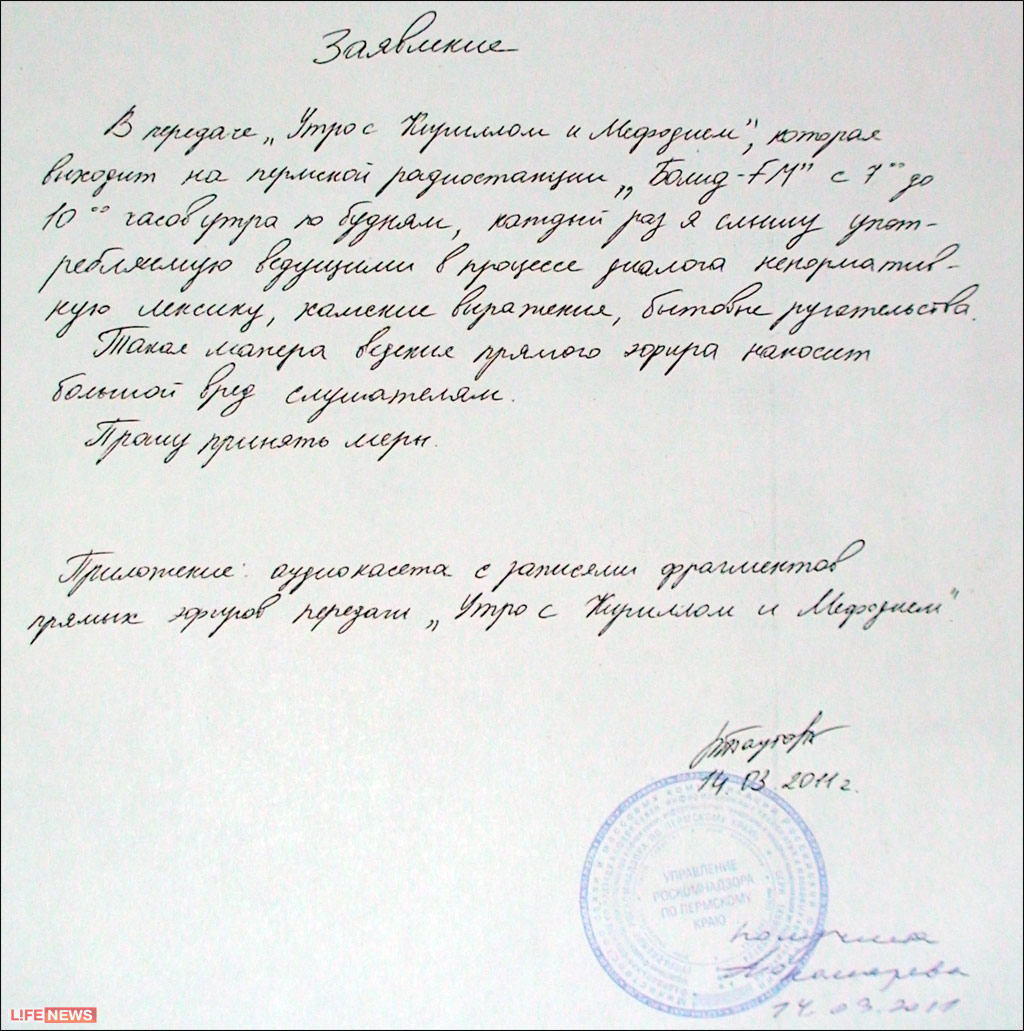 Заявление
В передаче „Утро с Кириллом и Мефодием", которая
выходит на пермской радиостанции „Болид-FM" с 7⁰⁰ до
10⁰⁰ часов утра по будням, каждый раз я слышу упот-
ребляемую ведущими в процессе диалога ненорматив-
ную лексику, хамские выражения, бытовые ругательства.
Такая манера ведения прямого эфира наносит
большой вред слушателям.
Прошу принять меры.
Приложение: аудиокасета с записями фрагментов
прямых эфиров передачи „Утро с Кириллом и Мефодием".
14.03.2011 г.
УПРАВЛЕНИЕ
РОСКОМНАДЗОРА
ПО ПЕРМСКОМУ
КРАЮ
получила
14.03.2011
L!FENEWS